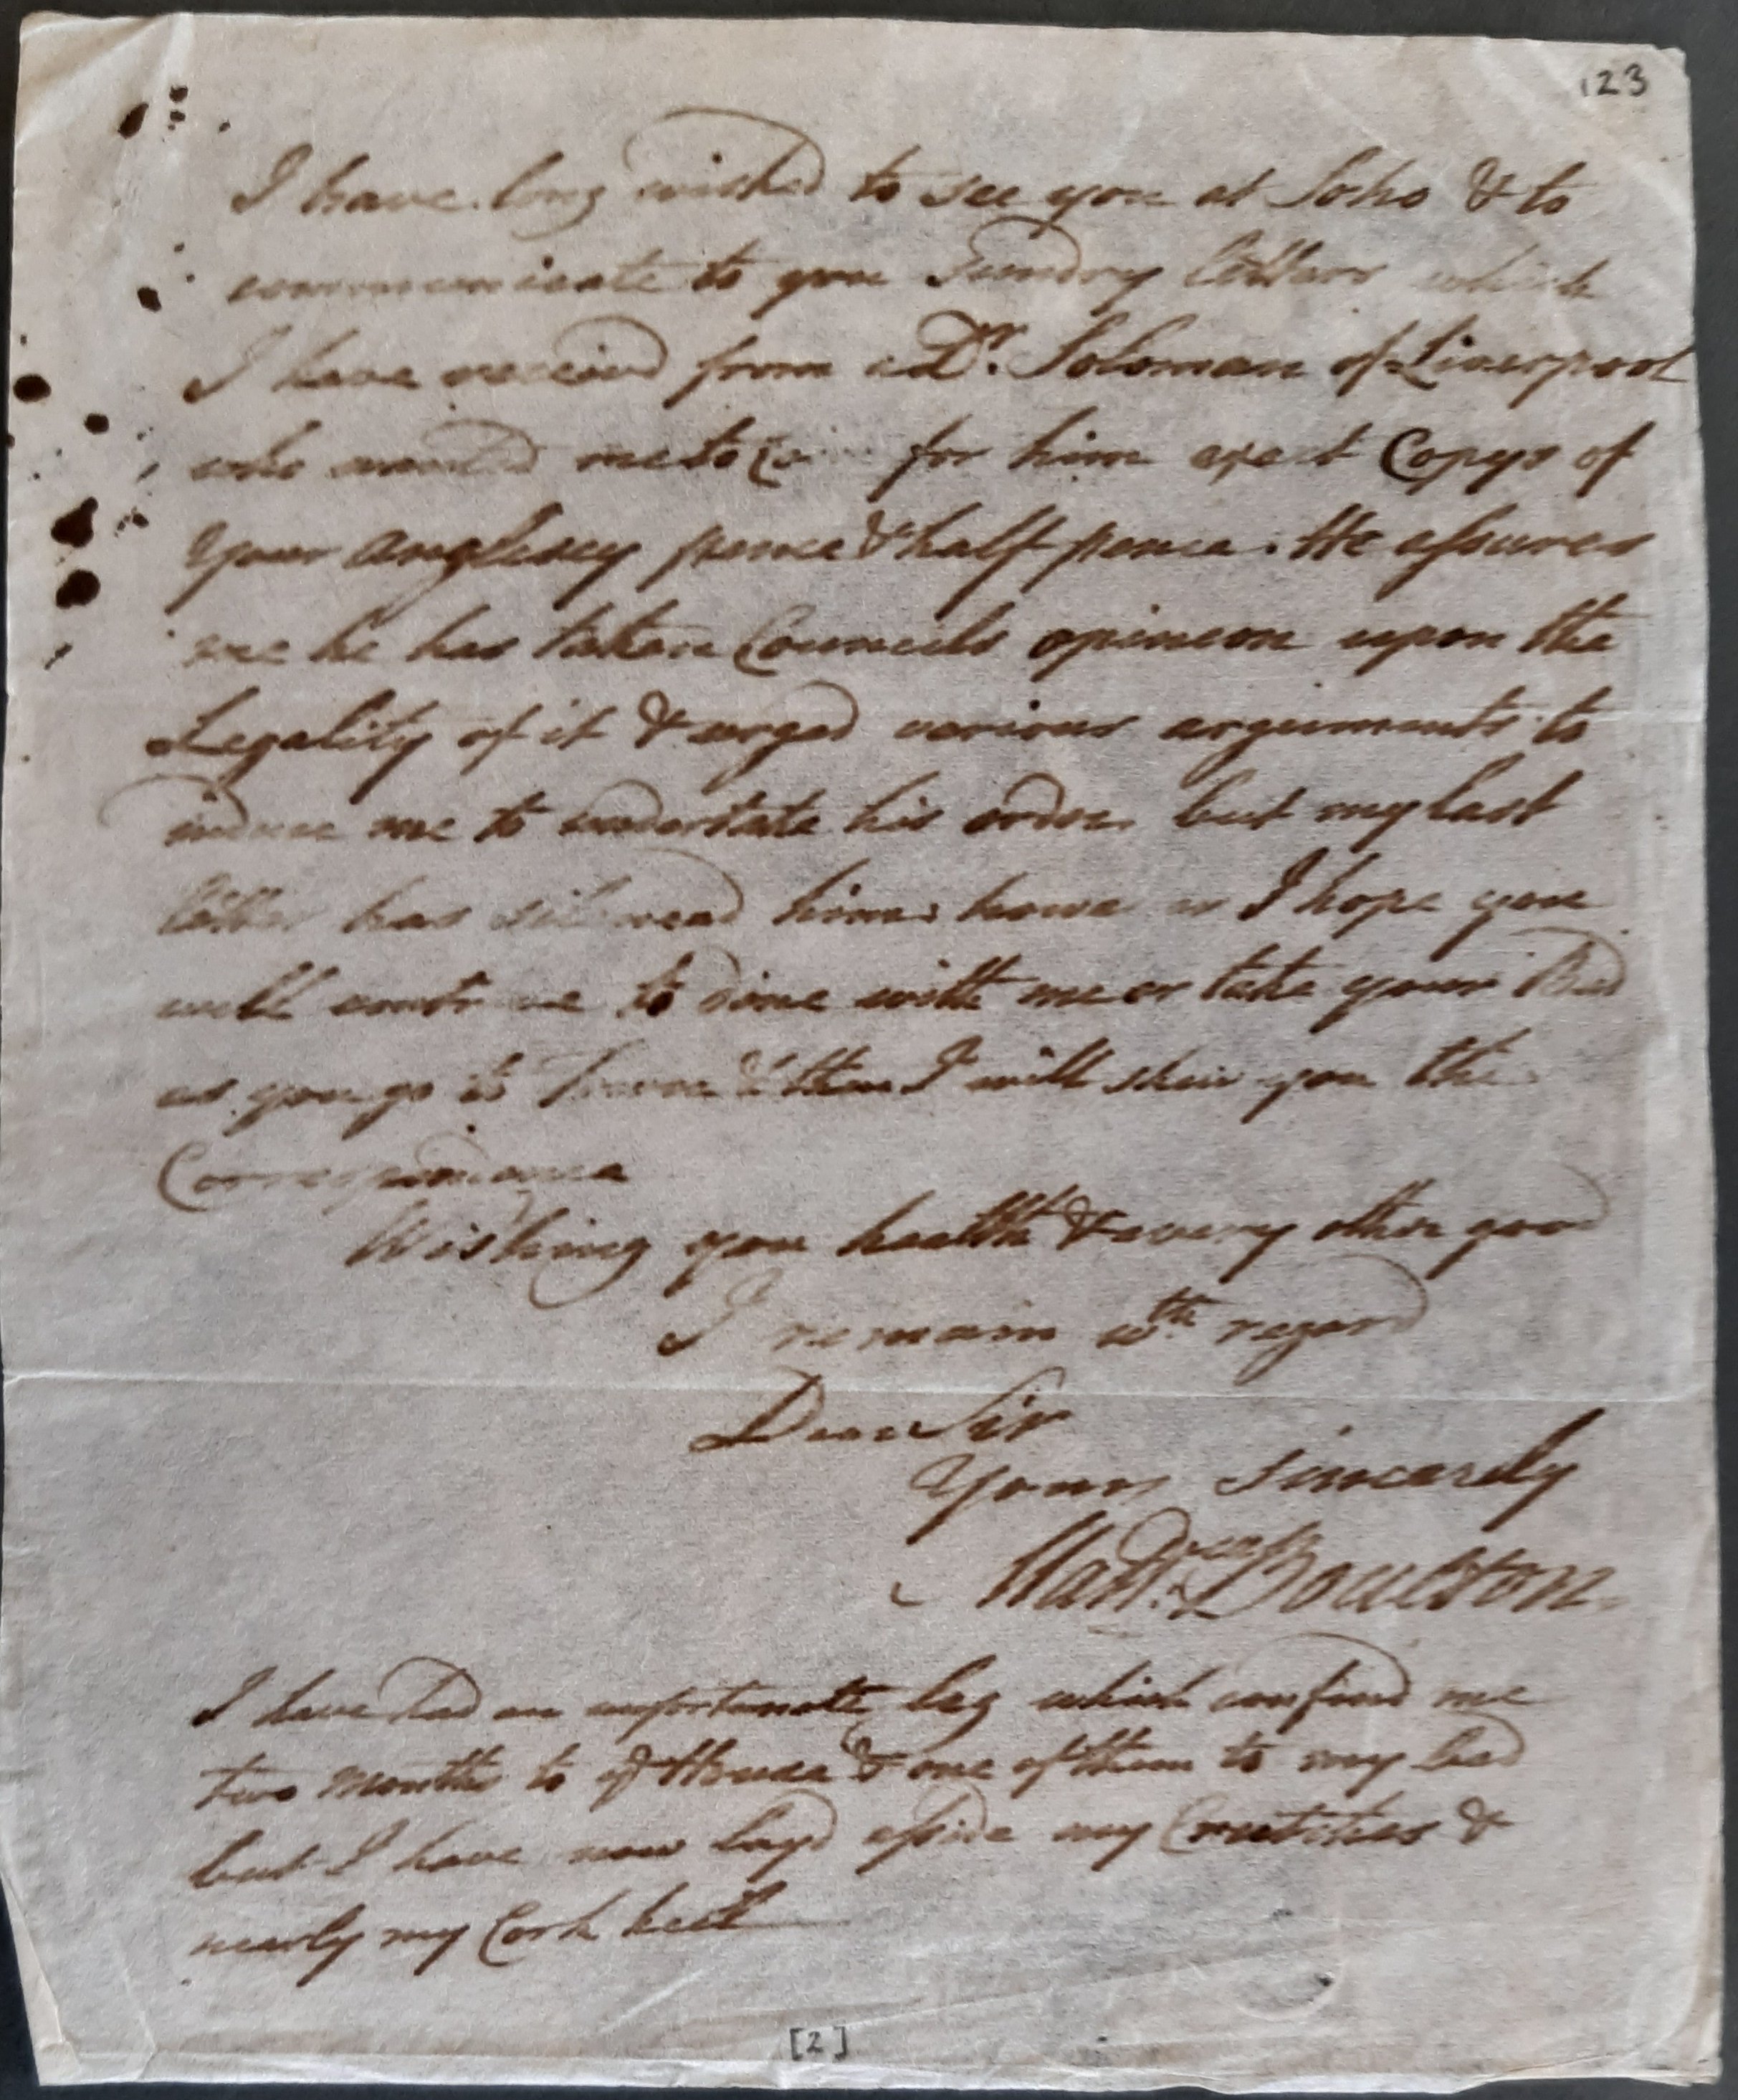 123
I have long wished to see you at Soho & to
communicate to you Sundry letters which
I have receivd from a Dr. Soloman of Liverpool
who wanted me to for him exact Copys of
Your Anglesey pence & half pence. He assures
me he has taken Councils opineon upon the
Legality of it & urged various arguments to
induce me to undertake his order but my last
letter has silencead him: however I hope you
will contrive to dine with me or take your Bed
as you go to Town & then I will shew you the
Correspondance
Wishing you health & every other good
I remain wth regard
Dear Sir
Yours Sincerely
Matt. Boulton
I have had an unfortunate leg which confined me
two months to ye House & one of them to my bed
but I have now layd asside my Crutches &
nearly my Cork heel
[2]